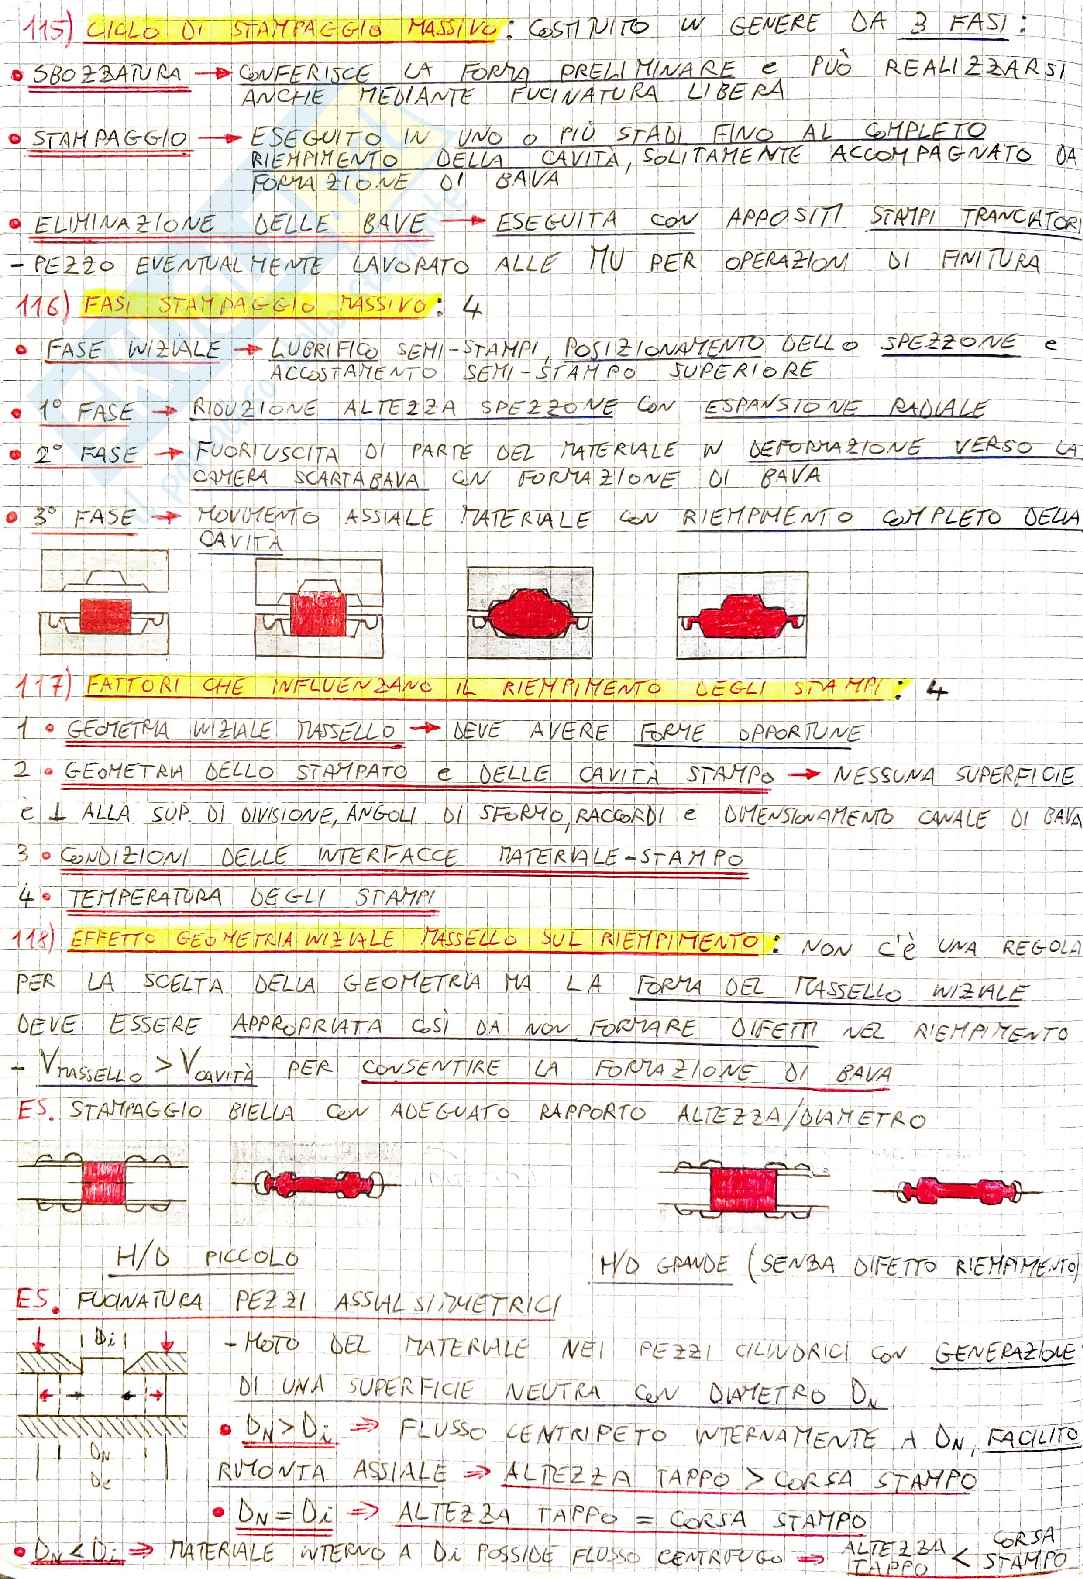 115) CICLO DI STAMPAGGIO MASSIVO: COSTITUITO IN GENERE DA 3 FASI:
• SBOZZATURA → CONFERISCE LA FORMA PRELIMINARE e PUÒ REALIZZARSI
ANCHE MEDIANTE FUCINATURA LIBERA
• STAMPAGGIO → ESEGUITO IN UNO O PIÙ STADI FINO AL COMPLETO
RIEMPIMENTO DELLA CAVITÀ, SOLITAMENTE ACCOMPAGNATO DA
FORMAZIONE DI BAVA
• ELIMINAZIONE DELLE BAVE → ESEGUITA CON APPOSITI STAMPI TRANCIATORI
- PEZZO EVENTUALMENTE LAVORATO ALLE MU PER OPERAZIONI DI FINITURA
116) FASI STAMPAGGIO MASSIVO: 4
• FASE INIZIALE → LUBRIFICO SEMI-STAMPI, POSIZIONAMENTO DELLO SPEZZONE e
ACCOSTAMENTO SEMI-STAMPO SUPERIORE
• 1° FASE → RIDUZIONE ALTEZZA SPEZZONE CON ESPANSIONE RADIALE
• 2° FASE → FUORIUSCITA DI PARTE DEL MATERIALE IN DEFORMAZIONE VERSO LA
CAMERA SCARTABAVA CON FORMAZIONE DI BAVA
• 3° FASE → MOVIMENTO ASSIALE MATERIALE CON RIEMPIMENTO COMPLETO DELLA
CAVITÀ
117) FATTORI CHE INFLUENZANO IL RIEMPIMENTO DEGLI STAMPI: 4
1 • GEOMETRIA INIZIALE MASSELLO → DEVE AVERE FORME OPPORTUNE
2 • GEOMETRIA DELLO STAMPATO e DELLE CAVITÀ STAMPO → NESSUNA SUPERFICIE
È ⊥ ALLA SUP. DI DIVISIONE, ANGOLI DI SFORMO, RACCORDI e DIMENSIONAMENTO CANALE DI BAVA
3 • CONDIZIONI DELLE INTERFACCE MATERIALE-STAMPO
4 • TEMPERATURA DEGLI STAMPI
118) EFFETTO GEOMETRIA INIZIALE MASSELLO SUL RIEMPIMENTO: NON C'È UNA REGOLA
PER LA SCELTA DELLA GEOMETRIA MA LA FORMA DEL MASSELLO INIZIALE
DEVE ESSERE APPROPRIATA COSÌ DA NON FORMARE DIFETTI NEL RIEMPIMENTO
- VMASSELLO > VCAVITÀ PER CONSENTIRE LA FORMAZIONE DI BAVA
ES. STAMPAGGIO BIELLA CON ADEGUATO RAPPORTO ALTEZZA/DIAMETRO
H/D PICCOLO
H/D GRANDE (SENZA DIFETTO RIEMPIMENTO)
ES. FUCINATURA PEZZI ASSIALSIMMETRICI
Di
- MOTO DEL MATERIALE NEI PEZZI CILINDRICI CON GENERAZIONE
DI UNA SUPERFICIE NEUTRA CON DIAMETRO DN
• DN > Di ⇒ FLUSSO CENTRIPETO INTERNAMENTE A DN, FACILITO
RIMONTA ASSIALE ⇒ ALTEZZA TAPPO > CORSA STAMPO
DN
De
• DN = Di ⇒ ALTEZZA TAPPO = CORSA STAMPO
• DN < Di ⇒ MATERIALE INTERNO A Di POSSIDE FLUSSO CENTRIFUGO ⇒ ALTEZZA TAPPO < CORSA STAMPO